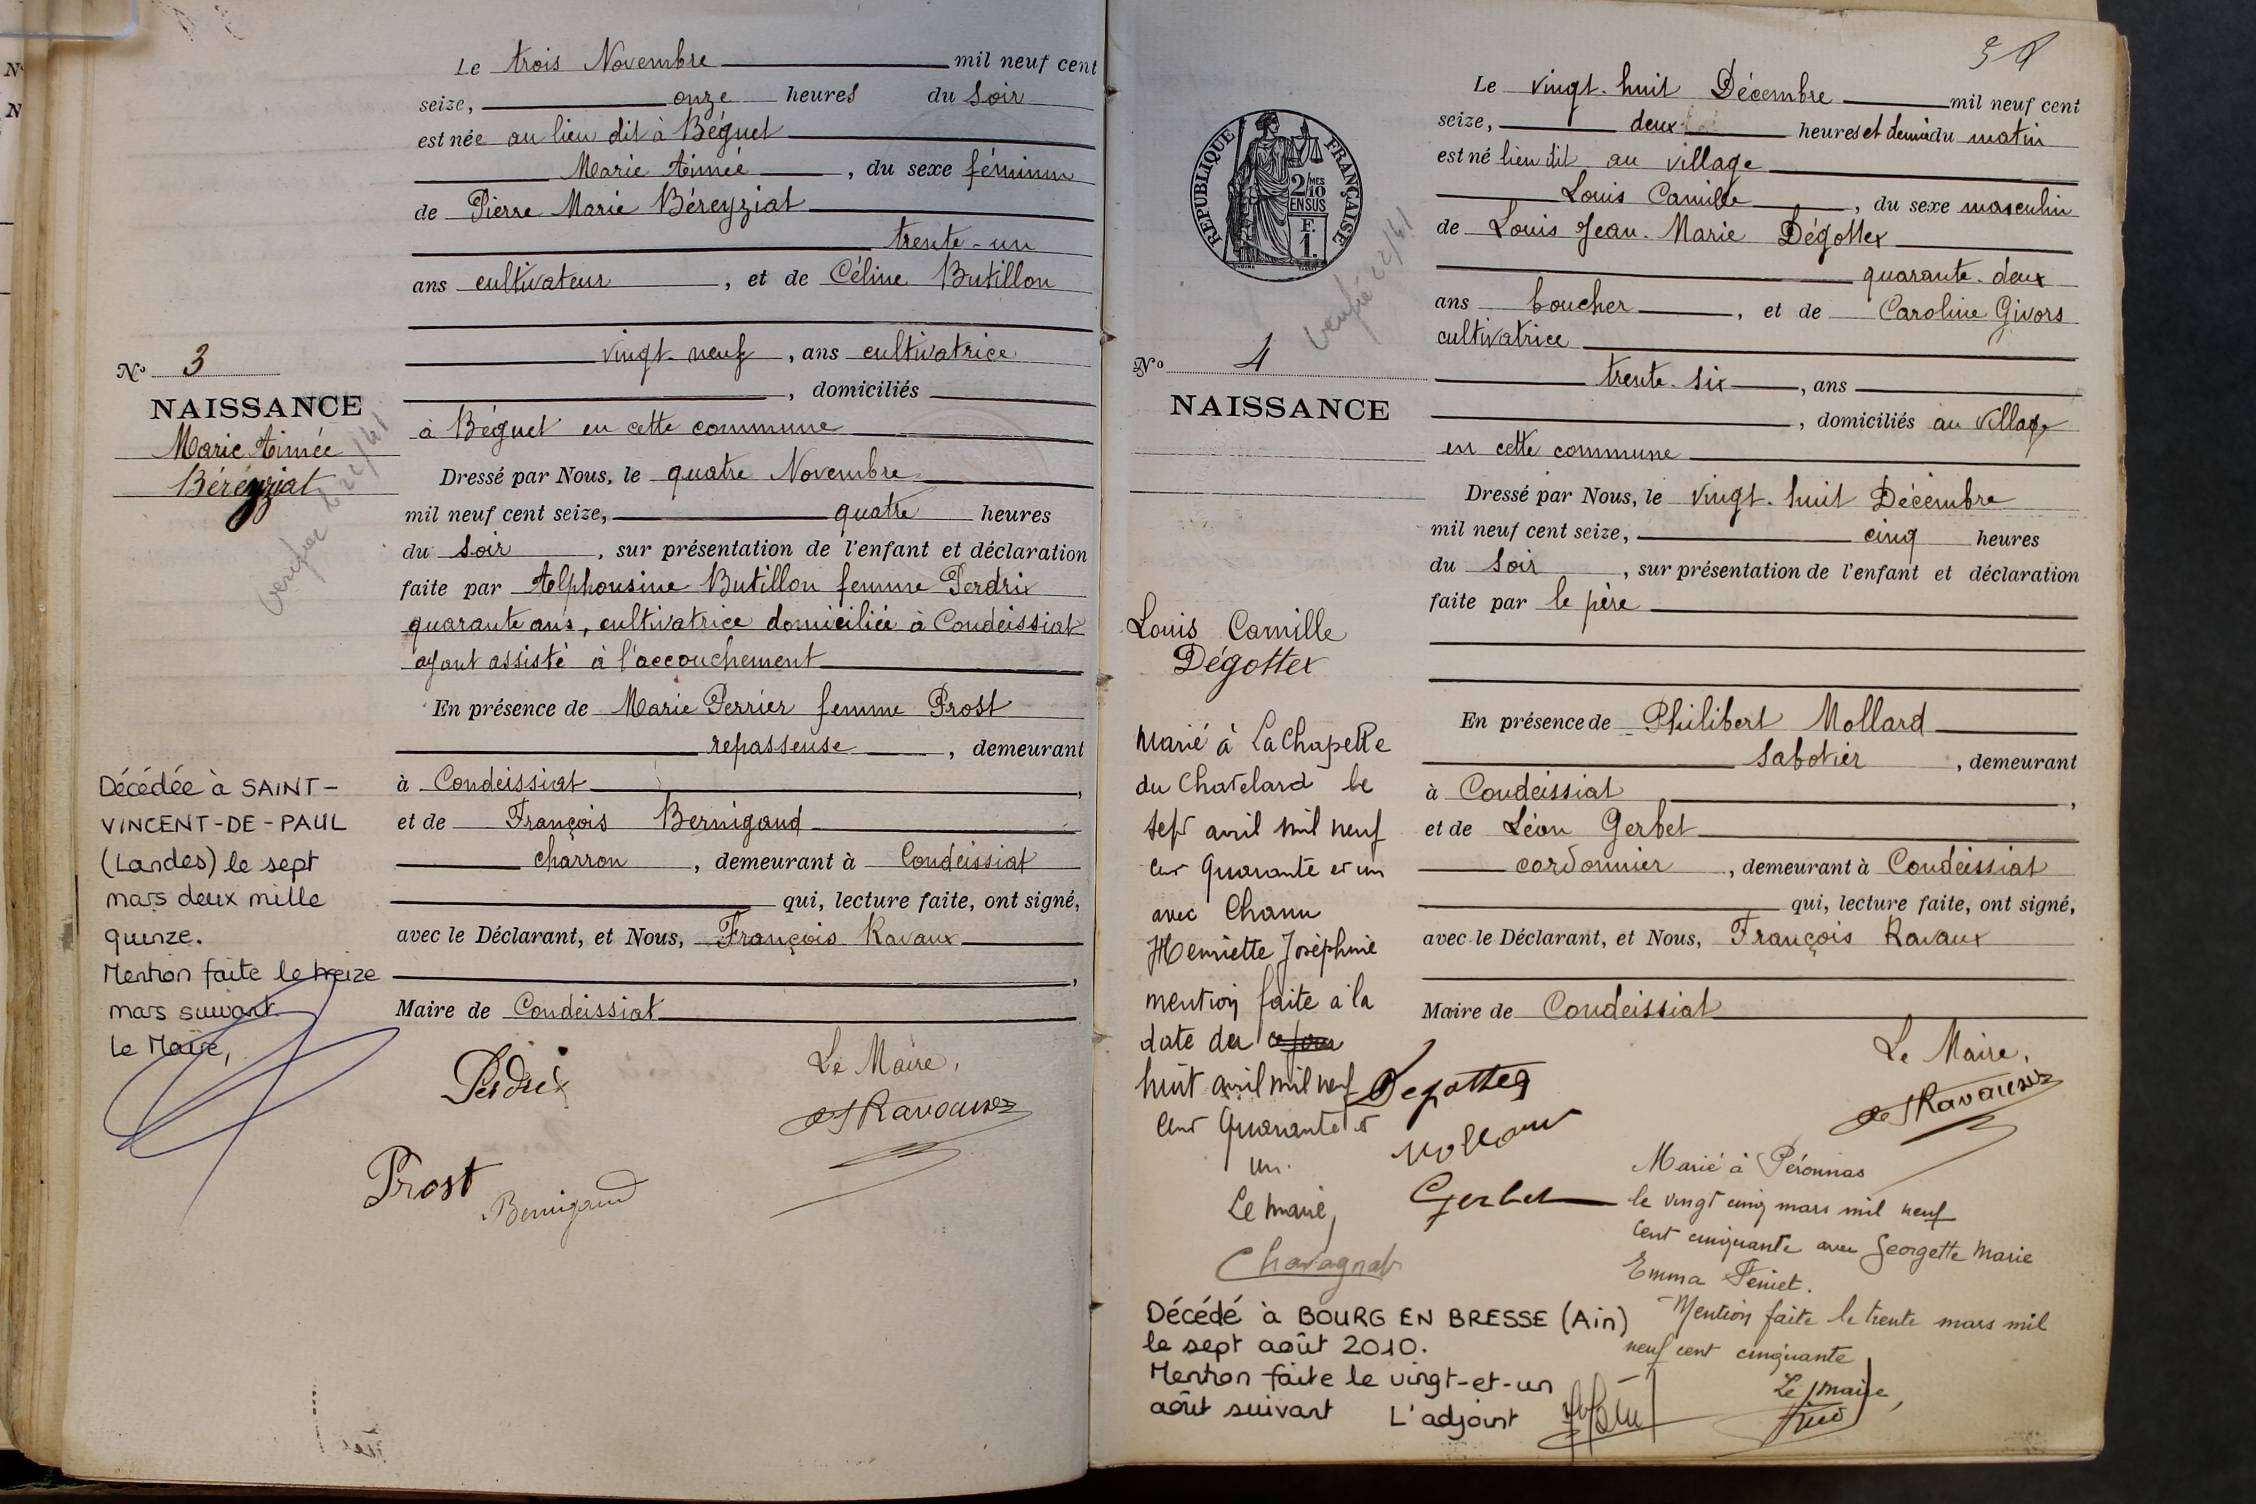 Le trois Novembre mil neuf cent
seize, onze heures du soir
est née au lieu dit à Béguet
Marie Aimée, du sexe féminin
de Pierre Marie Béreyziat
trente-un
ans cultivateur, et de Céline Butillon
vingt neuf, ans cultivatrice
, domiciliés
à Béguet en cette commune
Dressé par Nous, le quatre Novembre
mil neuf cent seize, quatre heures
du soir, sur présentation de l'enfant et déclaration
faite par Alphonsine Butillon femme Perdrix
quarante ans, cultivatrice domiciliée à Condeissiat
ayant assisté à l'accouchement
En présence de Marie Perrier femme Prost
repasseuse, demeurant
à Condeissiat,
et de François Bernigaud
charron, demeurant à Condeissiat
qui, lecture faite, ont signé,
avec le Déclarant, et Nous, François Ravaux
,
Maire de Condeissiat
Le Maire,
Perdrix
Prost
Bernigaud
No 3
NAISSANCE
Marie Aimée
Béréyziat
Décédée à SAINT-
VINCENT-DE-PAUL
(Landes) le sept
mars deux mille
quinze.
Mention faite le treize
mars suivant
Le Maire,
Le vingt-huit Décembre mil neuf cent
seize, deux heures et demie du matin
est né lieu dit au village
Louis Camille, du sexe masculin
de Louis Jean-Marie Dégottex
quarante-deux
ans boucher, et de Caroline Givors
cultivatrice
trente-six, ans
, domiciliés au village
en cette commune
Dressé par Nous, le vingt-huit Décembre
mil neuf cent seize, cinq heures
du soir, sur présentation de l'enfant et déclaration
faite par le père
En présence de Philibert Mollard
sabotier, demeurant
à Condeissiat,
et de Léon Gerbet
cordonnier, demeurant à Condeissiat
qui, lecture faite, ont signé,
avec le Déclarant, et Nous, François Ravaux
Maire de Condeissiat
Le Maire,
Degottex
Mollard
Gerbet
REPUBLIQUE FRANÇAISE
2/10 MES
EN SUS
F.
1.
No 4
NAISSANCE
Louis Camille
Dégottex
Marié à La Chapelle
du Chatelard le
sept avril mil neuf
cent quarante et un
avec Chanu
Henriette Joséphine
mention faite à la
date du ce jour
huit avril mil neuf
cent quarante et
un.
Le maire,
Marié à Péronnas
le vingt cinq mars mil neuf
cent cinquante avec Georgette Marie
Emma
Mention faite le trente mars mil
neuf cent cinquante
Le maire,
Décédé à BOURG EN BRESSE (Ain)
le sept août 2010.
Mention faite le vingt-et-un
août suivant L'adjoint